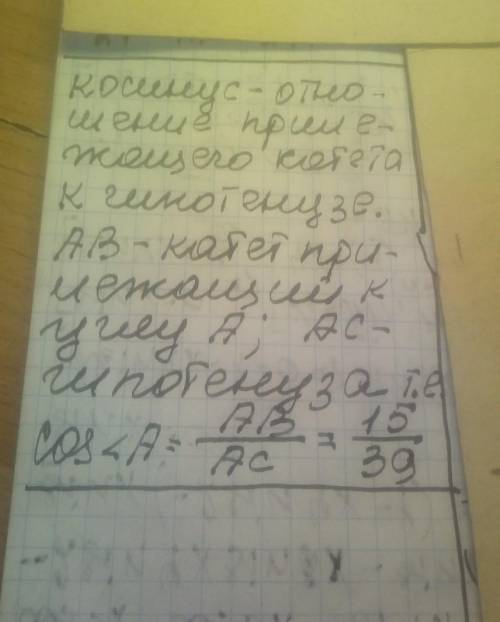 косинус - отно-
шение приле-
жащего катета
к гипотенузе.
АВ - катет при-
лежащий к
углу А; АС-
гипотенуза т.е
cos∠A = AB/AC = 15/39